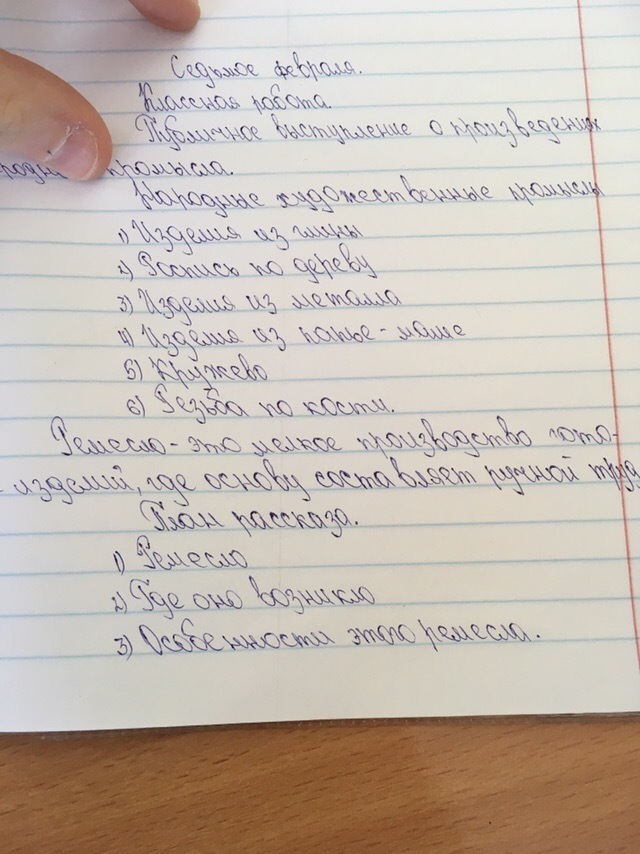 Седьмое февраля.
Классная работа.
Публичное выступление о произведениях
промысла.
Народные художественные промыслы
1) Изделия из глины
2) Роспись по дереву
3) Изделия из металла
4) Изделия из папье-маше
5) Кружево
6) Резьба по кости.
Ремесло - это мелкое производство гото-
изделий, где основу составляет ручной труд
План рассказа.
1) Ремесло
2) Где оно возникло
3) Особенности этого ремесла.